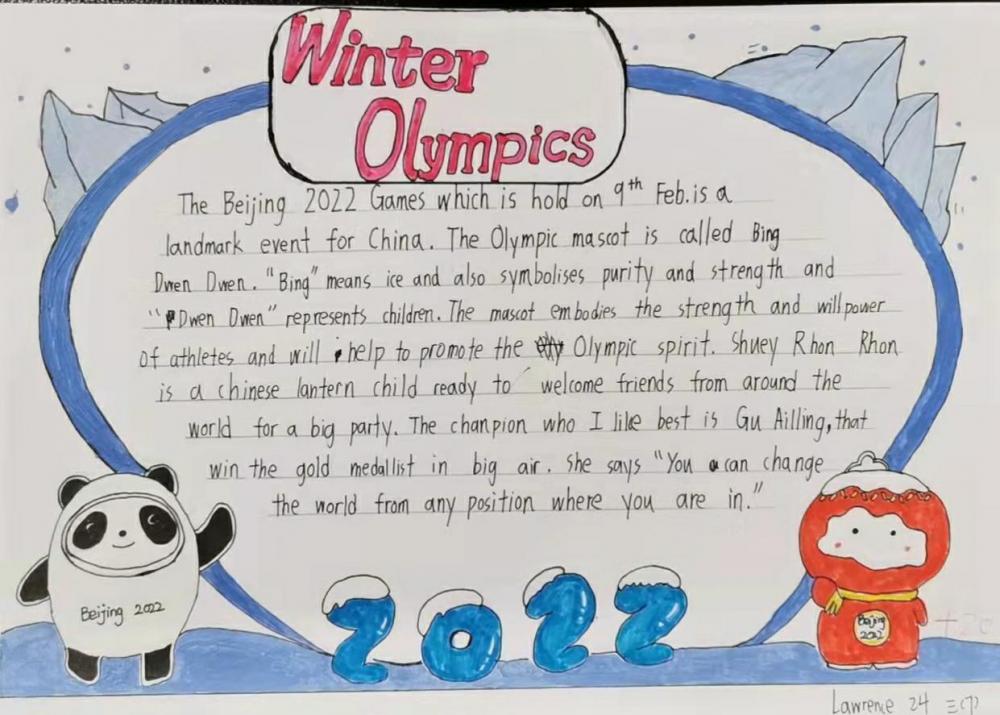 Winter
Olympics
The Beijing 2022 Games which is hold on 9th Feb. is a
landmark event for China. The Olympic mascot is called Bing
Dwen Dwen. "Bing" means ice and also symbolises purity and strength and
"Dwen Dwen" represents children. The mascot embodies the strength and willpower
of athletes and will help to promote the Olympic spirit. Shuey Rhon Rhon
is a chinese lantern child ready to welcome friends from around the
world for a big party. The chanpion who I like best is Gu Ailling, that
win the gold medallist in big air. She says "You can change
the world from any position where you are in."
Beijing 2022
2022
Beijing
2022
Lawrence 24